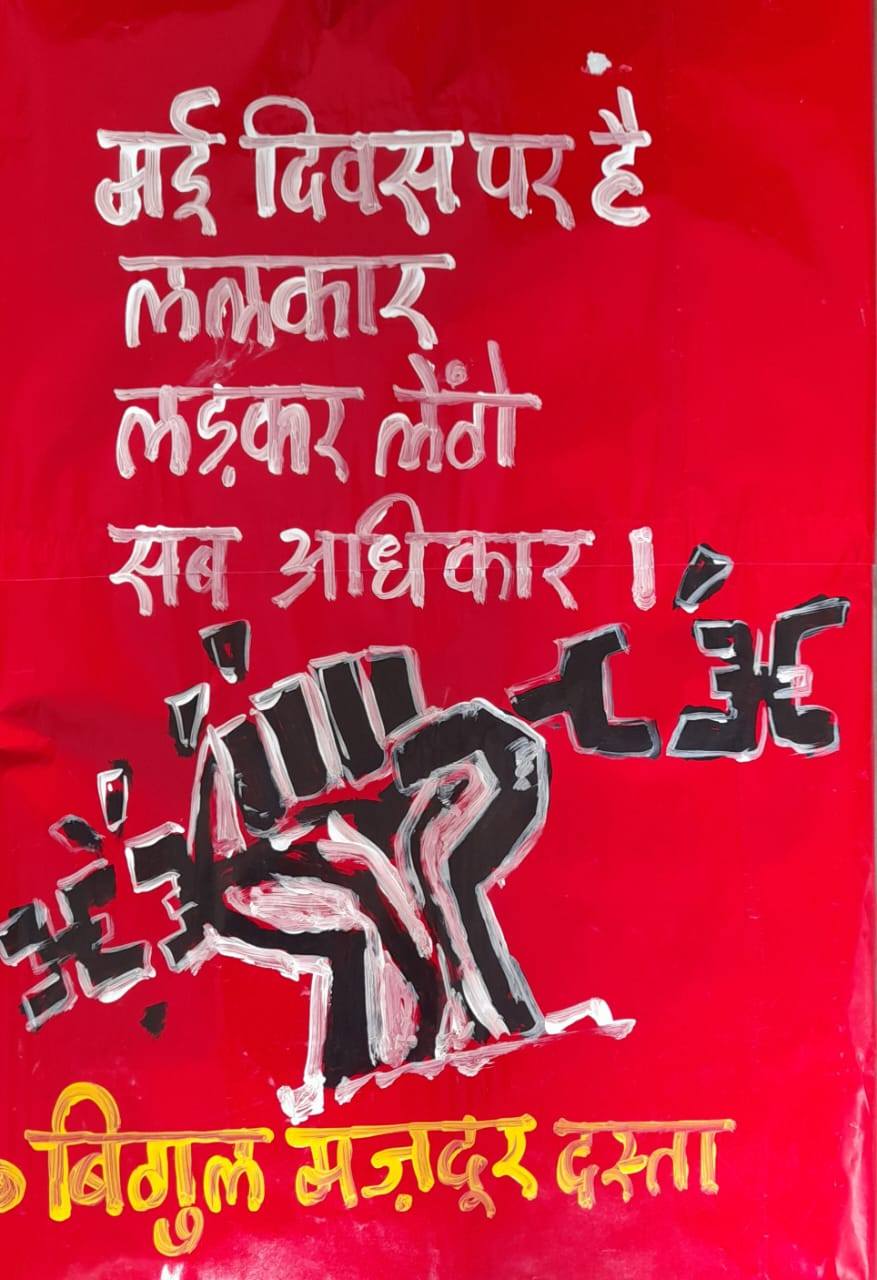 मई दिवस पर है
ललकार
लड़कर लेंगे
सब अधिकार ।
बिगुल मज़दूर दस्ता